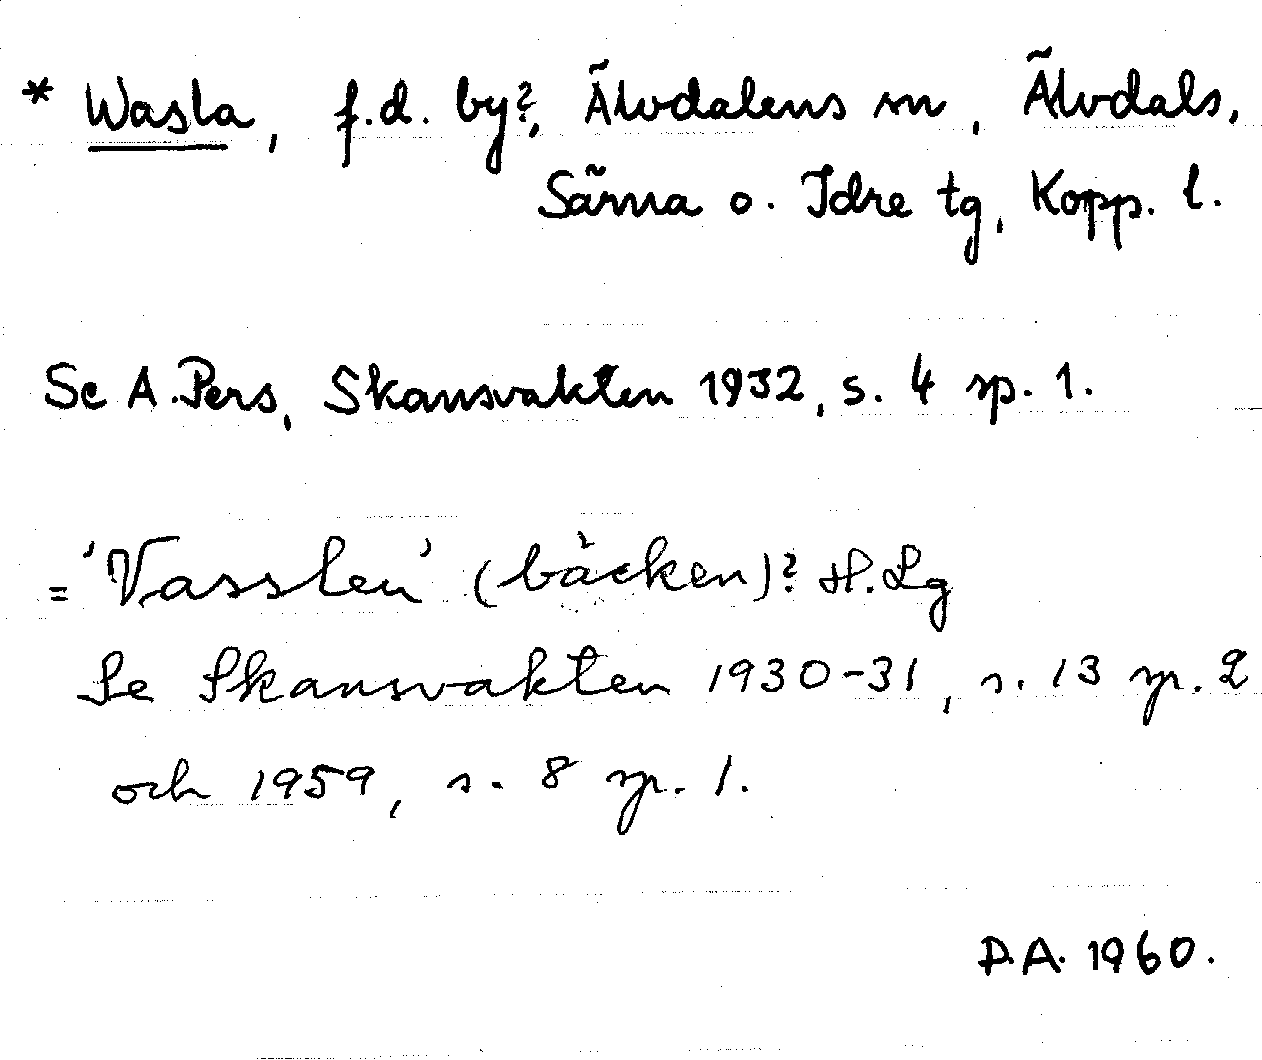 * Wasla, f.d. by?, Älvdalens sn, Älvdals,
Särna o. Idre tg, Kopp. l.
Se A. Pers, Skansvakten 1932, s. 4 sp. 1.
= 'Vasslen' (bäcken)? H. Lg
Se Skansvakten 1930-31, s. 13 sp. 2
och 1959, s. 8 sp. 1.
D.A. 1960.